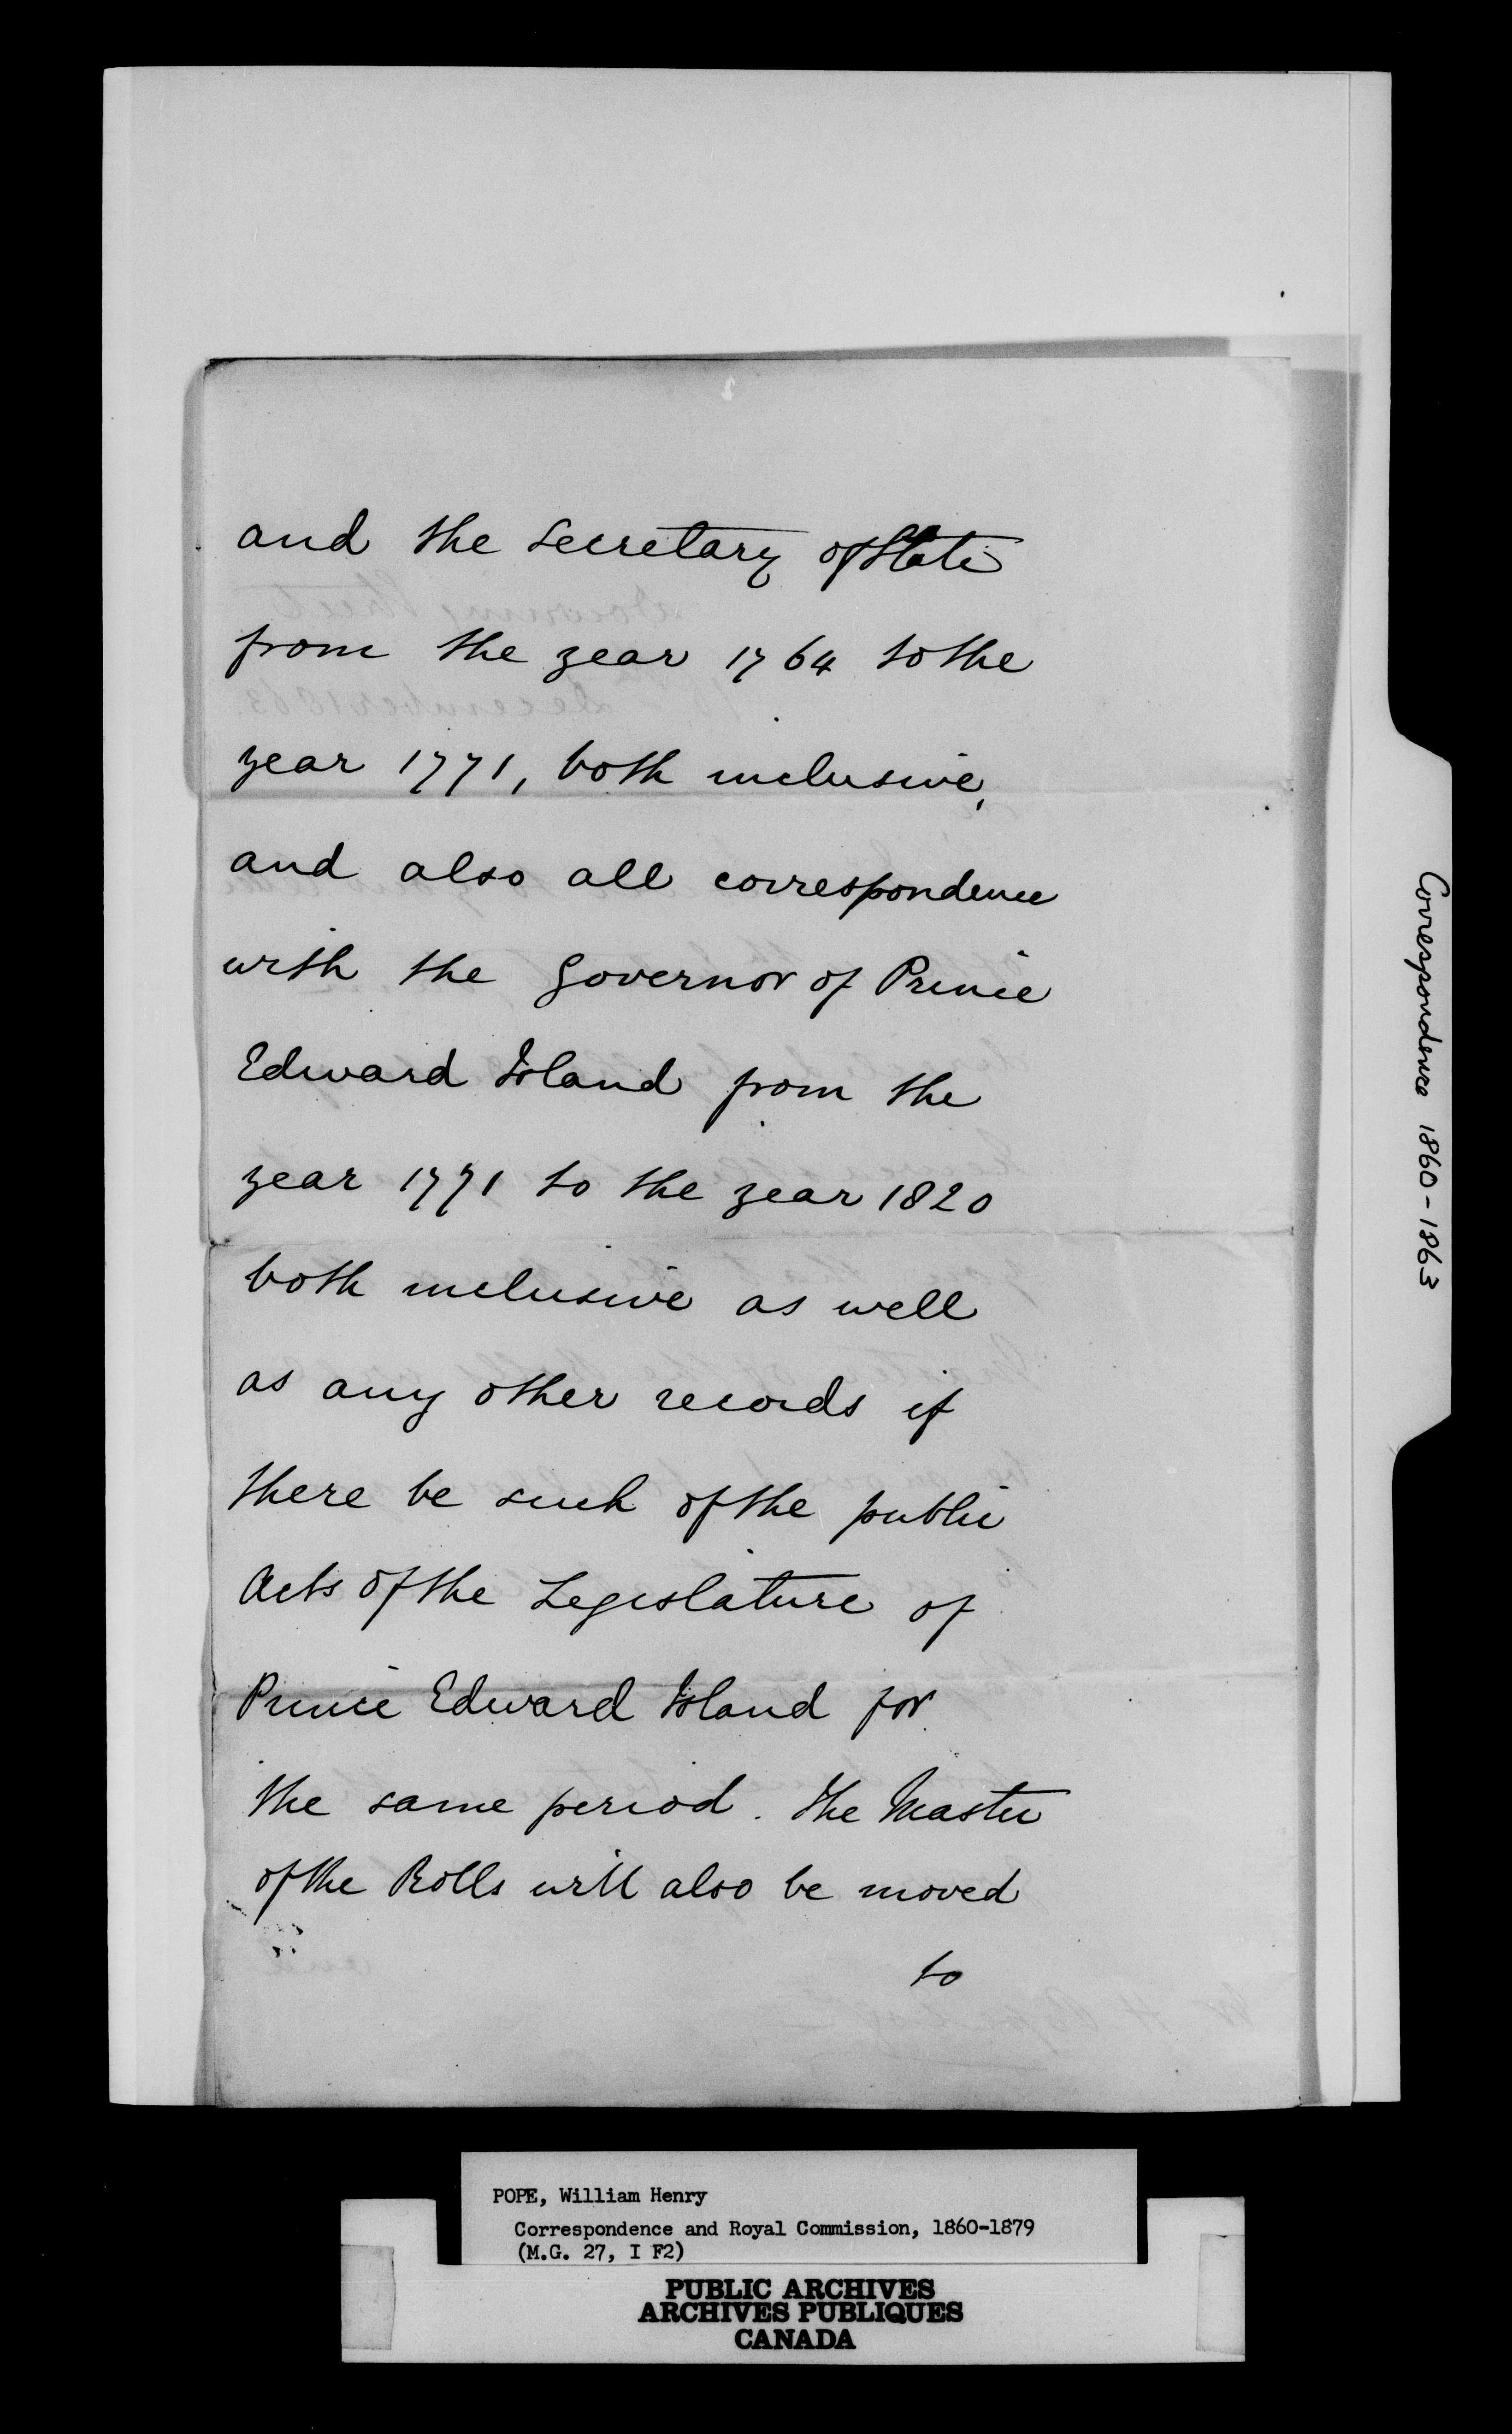 and the Secretary of State
from the year 1764 to the
year 1771, both inclusive,
and also all correspondence
with the Governor of Prince
Edward Island from the
year 1771 to the year 1820
both inclusive as well
as any other records if
there be such of the public
Acts of the Legislature of
Prince Edward Island for
the same period. The Master
of the Rolls will also be moved
to
Correspondence 1860-1863
POPE, William Henry
Correspondence and Royal Commission, 1860-1879
(M.G. 27, I F2)
PUBLIC ARCHIVES
ARCHIVES PUBLIQUES
CANADA